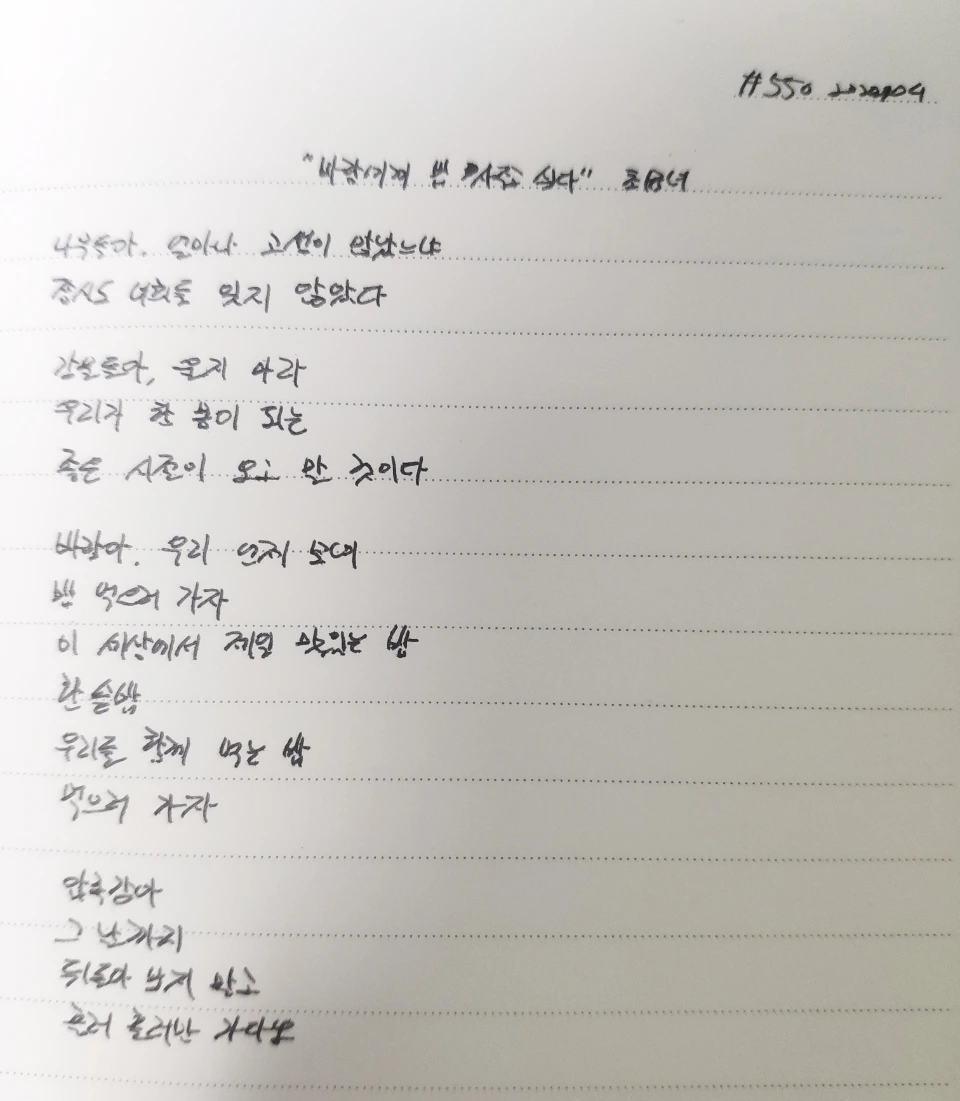 #550 20200904
"바람에게 밥 사주고 싶다"
나무들아, 얼마나 고생이 많았느냐
잠시도 너희를 잊지 않았다
강물들아, 울지 마라
우리가 한 몸이 되는
좋은 시절이 오고 말 것이다
바람아, 우리 언제 모여
밥 먹으러 가자
이 세상에서 제일 맛있는 밥
한솥밥
우리들 함께 먹는 밥
먹으러 가자
압록강아
그 날까지
뒤돌아 보지 말고
흘러 흘러만 가다오